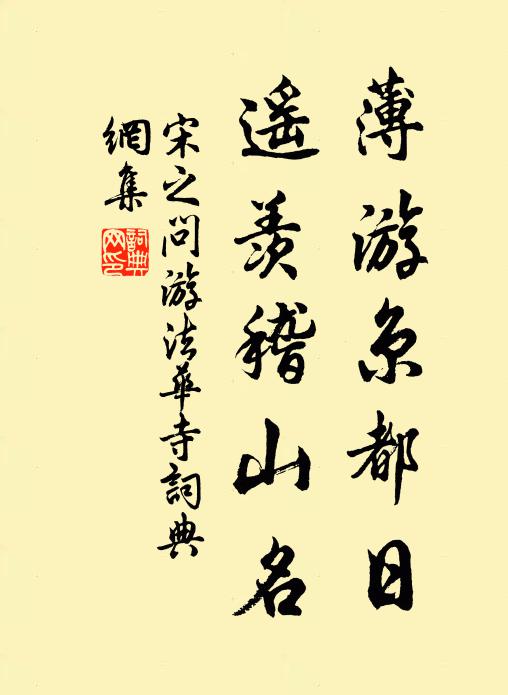 薄游京都日
遥羡稽山名
宋之问游法華寺詞典
網集
詞典網印